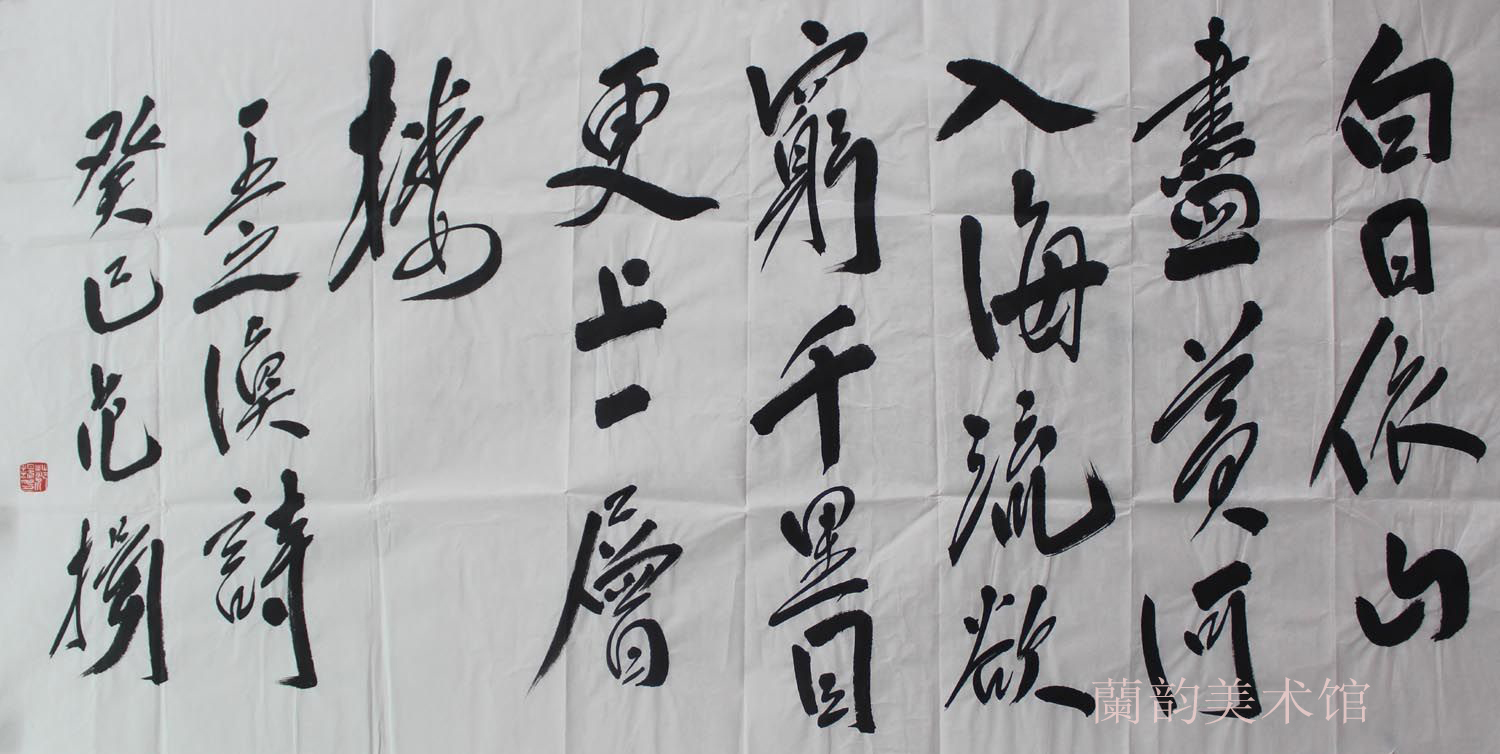 白日依山
盡黄河
入海流欲
窮千里目
更上一層
樓
王之渙詩
癸巳范揚
蘭韵美术馆